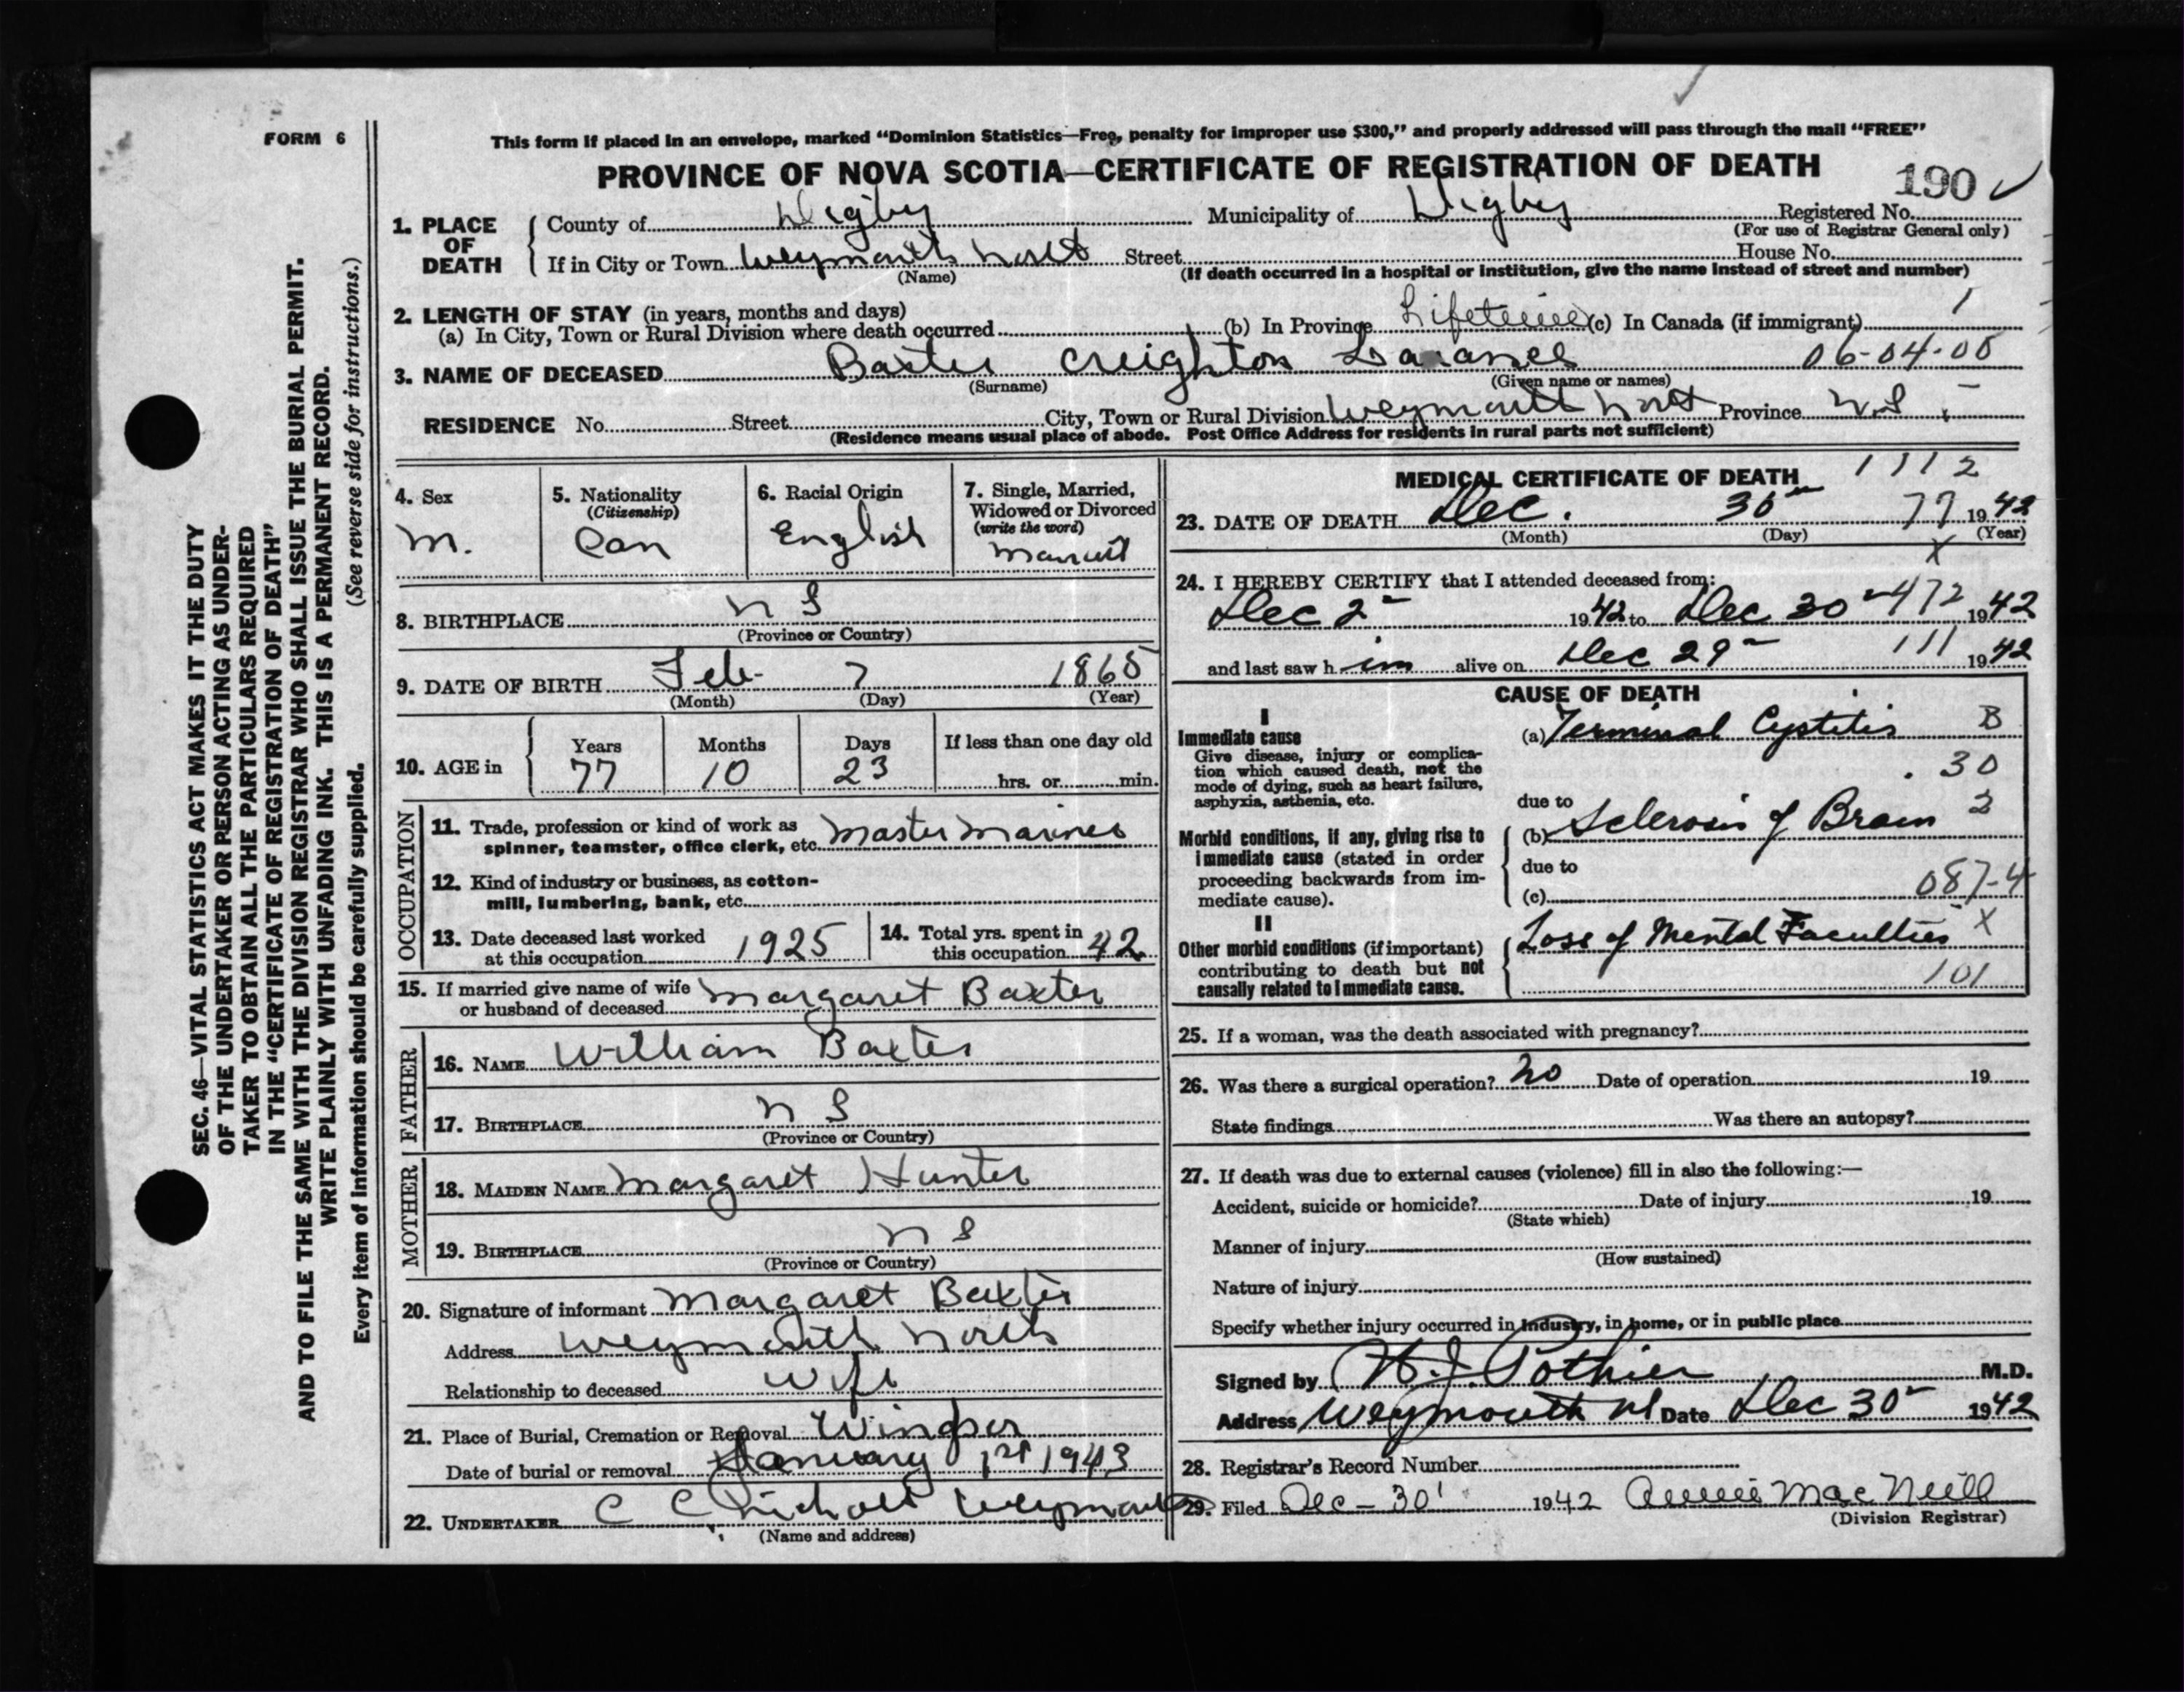 FORM 6
This form if placed in an envelope, marked “Dominion Statistics—Free, penalty for improper use $300,” and properly addressed will pass through the mail “FREE”
PROVINCE OF NOVA SCOTIA—CERTIFICATE OF REGISTRATION OF DEATH
190
1. PLACE OF DEATH
County of Digby Municipality of Digby Registered No.
(For use of Registrar General only)
If in City or Town Weymouth North Street House No.
(Name) (If death occurred in a hospital or institution, give the name instead of street and number)
2. LENGTH OF STAY (in years, months and days)
(a) In City, Town or Rural Division where death occurred (b) In Province Lifetime (c) In Canada (if immigrant) 1
3. NAME OF DECEASED Baxter Creighton 06-04-00
(Surname) (Given name or names)
RESIDENCE No. Street City, Town or Rural Division Weymouth North Province N.S.
(Residence means usual place of abode. Post Office Address for residents in rural parts not sufficient)
4. Sex
M.
5. Nationality
(Citizenship)
Can
6. Racial Origin
English
7. Single, Married,
Widowed or Divorced
(write the word)
Married
8. BIRTHPLACE N S
(Province or Country)
9. DATE OF BIRTH Feb. 7 1865
(Month) (Day) (Year)
10. AGE in
Years Months Days If less than one day old
77 10 23 hrs. or min.
OCCUPATION
11. Trade, profession or kind of work as
spinner, teamster, office clerk, etc. Master Mariner
12. Kind of industry or business, as cotton-
mill, lumbering, bank, etc.
13. Date deceased last worked
at this occupation 1925
14. Total yrs. spent in
this occupation 42
15. If married give name of wife
or husband of deceased Margaret Baxter
FATHER
16. NAME William Baxter
17. BIRTHPLACE N S
(Province or Country)
MOTHER
18. MAIDEN NAME Margaret Hunter
19. BIRTHPLACE N S
(Province or Country)
20. Signature of informant Margaret Baxter
Address Weymouth North
Relationship to deceased Wife
21. Place of Burial, Cremation or Removal Windsor
Date of burial or removal January 1st 1943
22. UNDERTAKER C C Nichols Weymouth
(Name and address)
MEDICAL CERTIFICATE OF DEATH 1112
23. DATE OF DEATH Dec. 30 77 1942
(Month) (Day) (Year)
X
24. I HEREBY CERTIFY that I attended deceased from:
Dec 2 1942 to Dec 30 472 1942
and last saw him alive on Dec 29 111 1942
CAUSE OF DEATH
I
Immediate cause
Give disease, injury or complica-
tion which caused death, not the
mode of dying, such as heart failure,
asphyxia, asthenia, etc.
(a) Terminal Cystitis B
30
due to
Morbid conditions, if any, giving rise to
immediate cause (stated in order
proceeding backwards from im-
mediate cause).
(b) Sclerosis of Brain 2
due to
(c) 087-4
II
Other morbid conditions (if important)
contributing to death but not
causally related to immediate cause.
Loss of Mental Faculties X
101
25. If a woman, was the death associated with pregnancy?
26. Was there a surgical operation? no Date of operation 19
State findings Was there an autopsy?
27. If death was due to external causes (violence) fill in also the following:—
Accident, suicide or homicide? Date of injury 19
(State which)
Manner of injury
(How sustained)
Nature of injury
Specify whether injury occurred in industry, in home, or in public place
Signed by Pothier M.D.
Address Weymouth NS Date Dec 30 1942
28. Registrar's Record Number
29. Filed Dec - 30 1942 Annie MacNeill
(Division Registrar)
SEC. 46—VITAL STATISTICS ACT MAKES IT THE DUTY
OF THE UNDERTAKER OR PERSON ACTING AS UNDER-
TAKER TO OBTAIN ALL THE PARTICULARS REQUIRED
IN THE “CERTIFICATE OF REGISTRATION OF DEATH”
AND TO FILE THE SAME WITH THE DIVISION REGISTRAR WHO SHALL ISSUE THE BURIAL PERMIT.
WRITE PLAINLY WITH UNFADING INK. THIS IS A PERMANENT RECORD.
Every item of information should be carefully supplied. (See reverse side for instructions.)